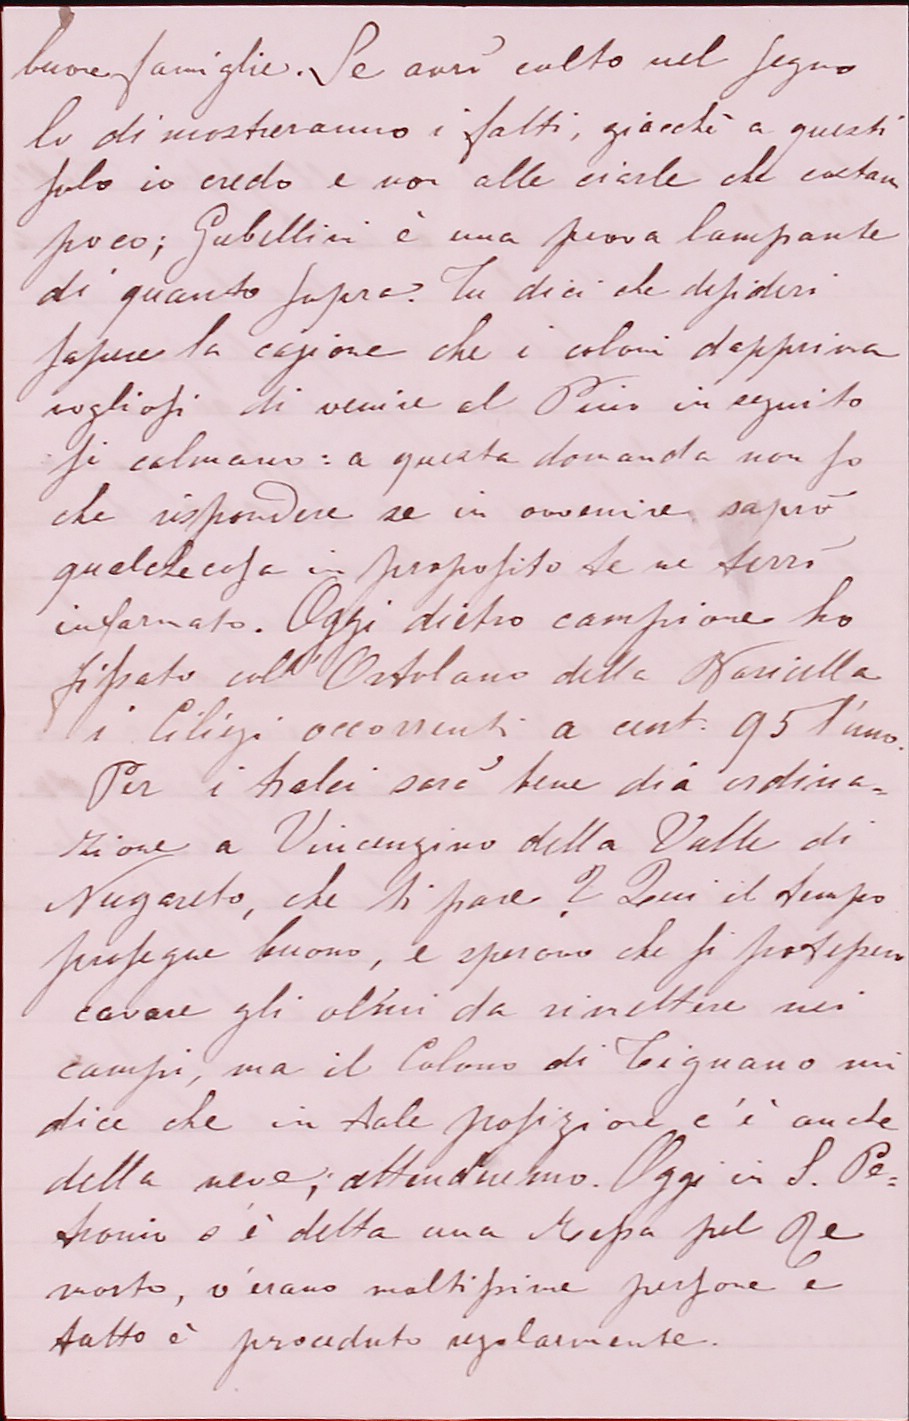 buone famiglie. Se avrò colto nel segno
lo dimostreranno i fatti, giacchè a questi
solo io credo e non alle ciarle che costan
poco; Gubellini è una prova lampante
di quanto sopra. Tu dici che desideri
sapere la cagione che i coloni dapprima
vogliosi di venire al Pino in seguito
si calmano: a questa domanda non so
che rispondere se in avvenire saprò
qualchecosa in proposito te ne terrò
informato. Oggi dietro campione ho
fissato coll' Ortolano della
i Ciliegi occorrenti a cent. 95 l'uno.
Per i tralci sarà bene dia ordina=
zione a Vincenzino della Valle di
Nugareto, che ti pare? Qui il tempo
prosegue buono, e sperano che si potessero
cavare gli olmi da rimettere nei
campi, ma il Colono di Tignano mi
dice che in tale posizione c'è anche
della neve; attenderemo. Oggi in S. Pe=
tronio s'è detta una Messa pel Re
morto, v'erano moltissime persone e
tutto è proceduto regolarmente.